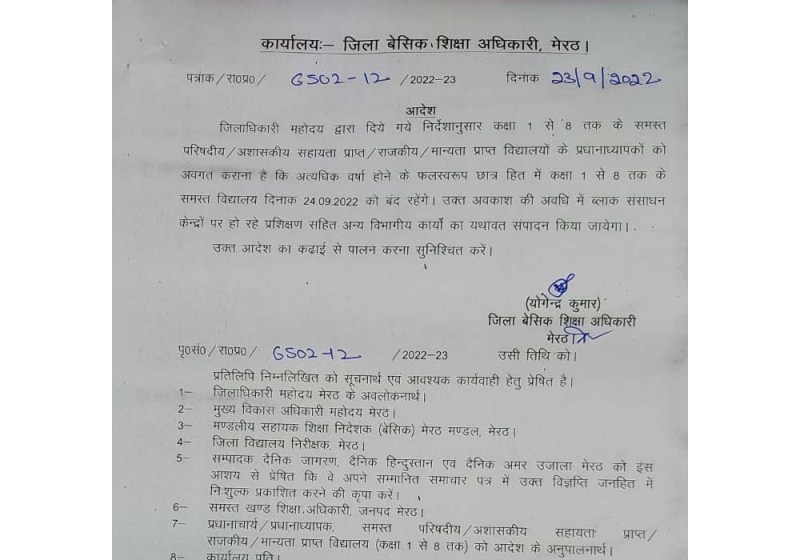 कार्यालयः– जिला बेसिक शिक्षा अधिकारी, मेरठ।
पत्रांक/रा0प्र0/ 6502-12 /2022-23 दिनांक 23/9/2022
आदेश
जिलाधिकारी महोदय द्वारा दिये गये निर्देशानुसार कक्षा 1 से 8 तक के समस्त
परिषदीय/अशासकीय सहायता प्राप्त/राजकीय/मान्यता प्राप्त विद्यालयों के प्रधानाध्यापकों को
अवगत कराना है कि अत्यधिक वर्षा होने के फलस्वरूप छात्र हित में कक्षा 1 से 8 तक के
समस्त विद्यालय दिनांक 24.09.2022 को बंद रहेंगे। उक्त अवकाश की अवधि में ब्लाक संसाधन
केन्द्रों पर हो रहे प्रशिक्षण सहित अन्य विभागीय कार्यो का यथावत संपादन किया जायेगा।
उक्त आदेश का कढ़ाई से पालन करना सुनिश्चित करें।
(योगेन्द्र कुमार)
जिला बेसिक शिक्षा अधिकारी
मेरठ
पृ0सं0/रा0प्र0/ 6502-12 /2022-23 उसी तिथि को।
प्रतिलिपि निम्नलिखित को सूचनार्थ एवं आवश्यक कार्यवाही हेतु प्रेषित है।
1– जिलाधिकारी महोदय मेरठ के अवलोकनार्थ।
2– मुख्य विकास अधिकारी महोदय मेरठ।
3– मण्डलीय सहायक शिक्षा निदेशक (बेसिक) मेरठ मण्डल, मेरठ।
4– जिला विद्यालय निरीक्षक, मेरठ।
5– सम्पादक दैनिक जागरण, दैनिक हिन्दुस्तान एवं दैनिक अमर उजाला मेरठ को इस
आशय से प्रेषित कि वे अपने सम्मानित समाचार पत्र में उक्त विज्ञप्ति जनहित में
निःशुल्क प्रकाशित करने की कृपा करें।
6– समस्त खण्ड शिक्षा अधिकारी, जनपद मेरठ।
7– प्रधानाचार्य/प्रधानाध्यापक, समस्त परिषदीय/अशासकीय सहायता प्राप्त/
राजकीय/मान्यता प्राप्त विद्यालय (कक्षा 1 से 8 तक) को आदेश के अनुपालनार्थ।
8– कार्यालय प्रति।